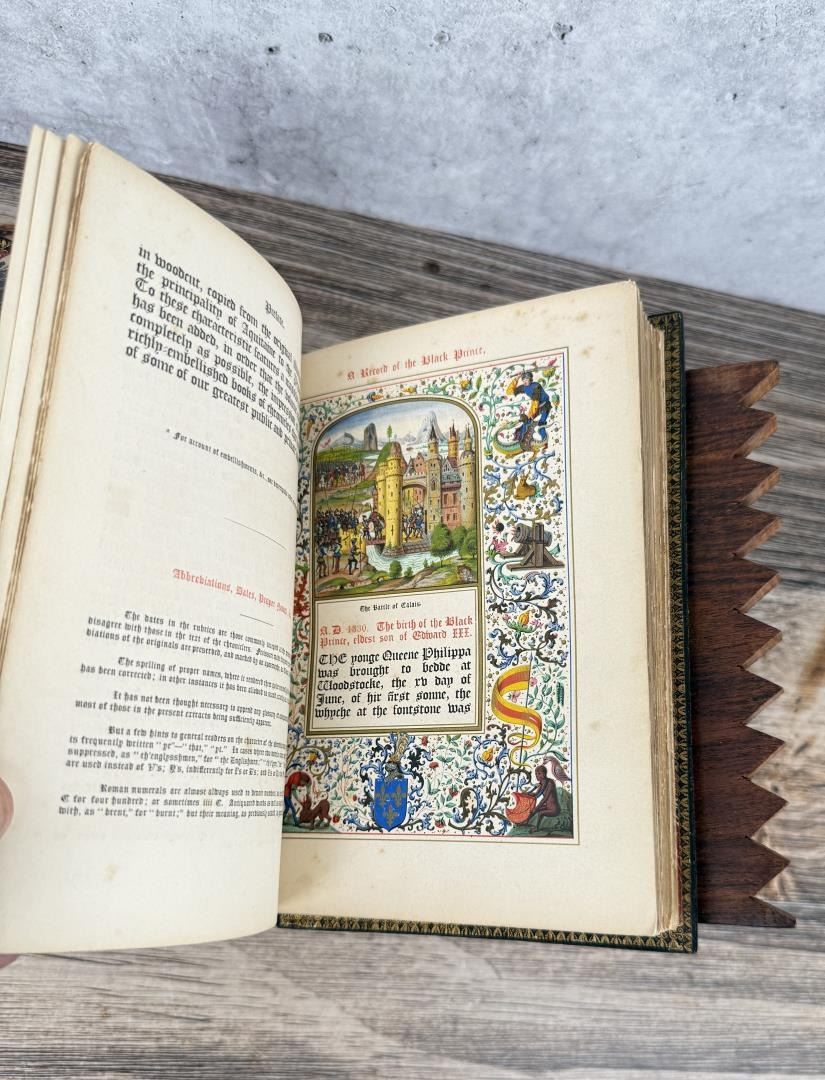 Preface.
in woodcut, copied from the original
the principality of Aquitaine
To these characteristic features
has been added, in order that the
completely as possible, the
richly-embellished books of chronicles
of some of our greatest public and
* For account of embellishments, &c.
Abbreviations, Dates, Proper
The dates in the rubrics are those commonly
disagree with those in the text of the chroniclers. Froissart
biations of the originals are preserved, and marked by an
The spelling of proper names, where it rendered them
has been corrected; in other instances it has been allowed to
It has not been thought necessary to append any glossary
most of those in the present extracts being sufficiently apparent.
But a few hints to general readers on the character of the
is frequently written "ye"—"that," "yt." In cases where
suppressed, as "th'englysshmen," for "the Englishmen;"
are used instead of V's; Y's, indifferently for I's or E's; and
Roman numerals are almost always used to denote
C for four hundred; or sometimes iiii C. Antiquated
with, as "brent," for "burnt;" but their meaning, as previously
A Record of the Black Prince.
The Battle of Calais.
A.D. 1330. The birth of the Black
Prince, eldest son of Edward III.
THE yonge Queene Philippa
was brought to bedde at
Woodstocke, the xv day of
June, of hir first sonne, the
whyche at the fontstone was